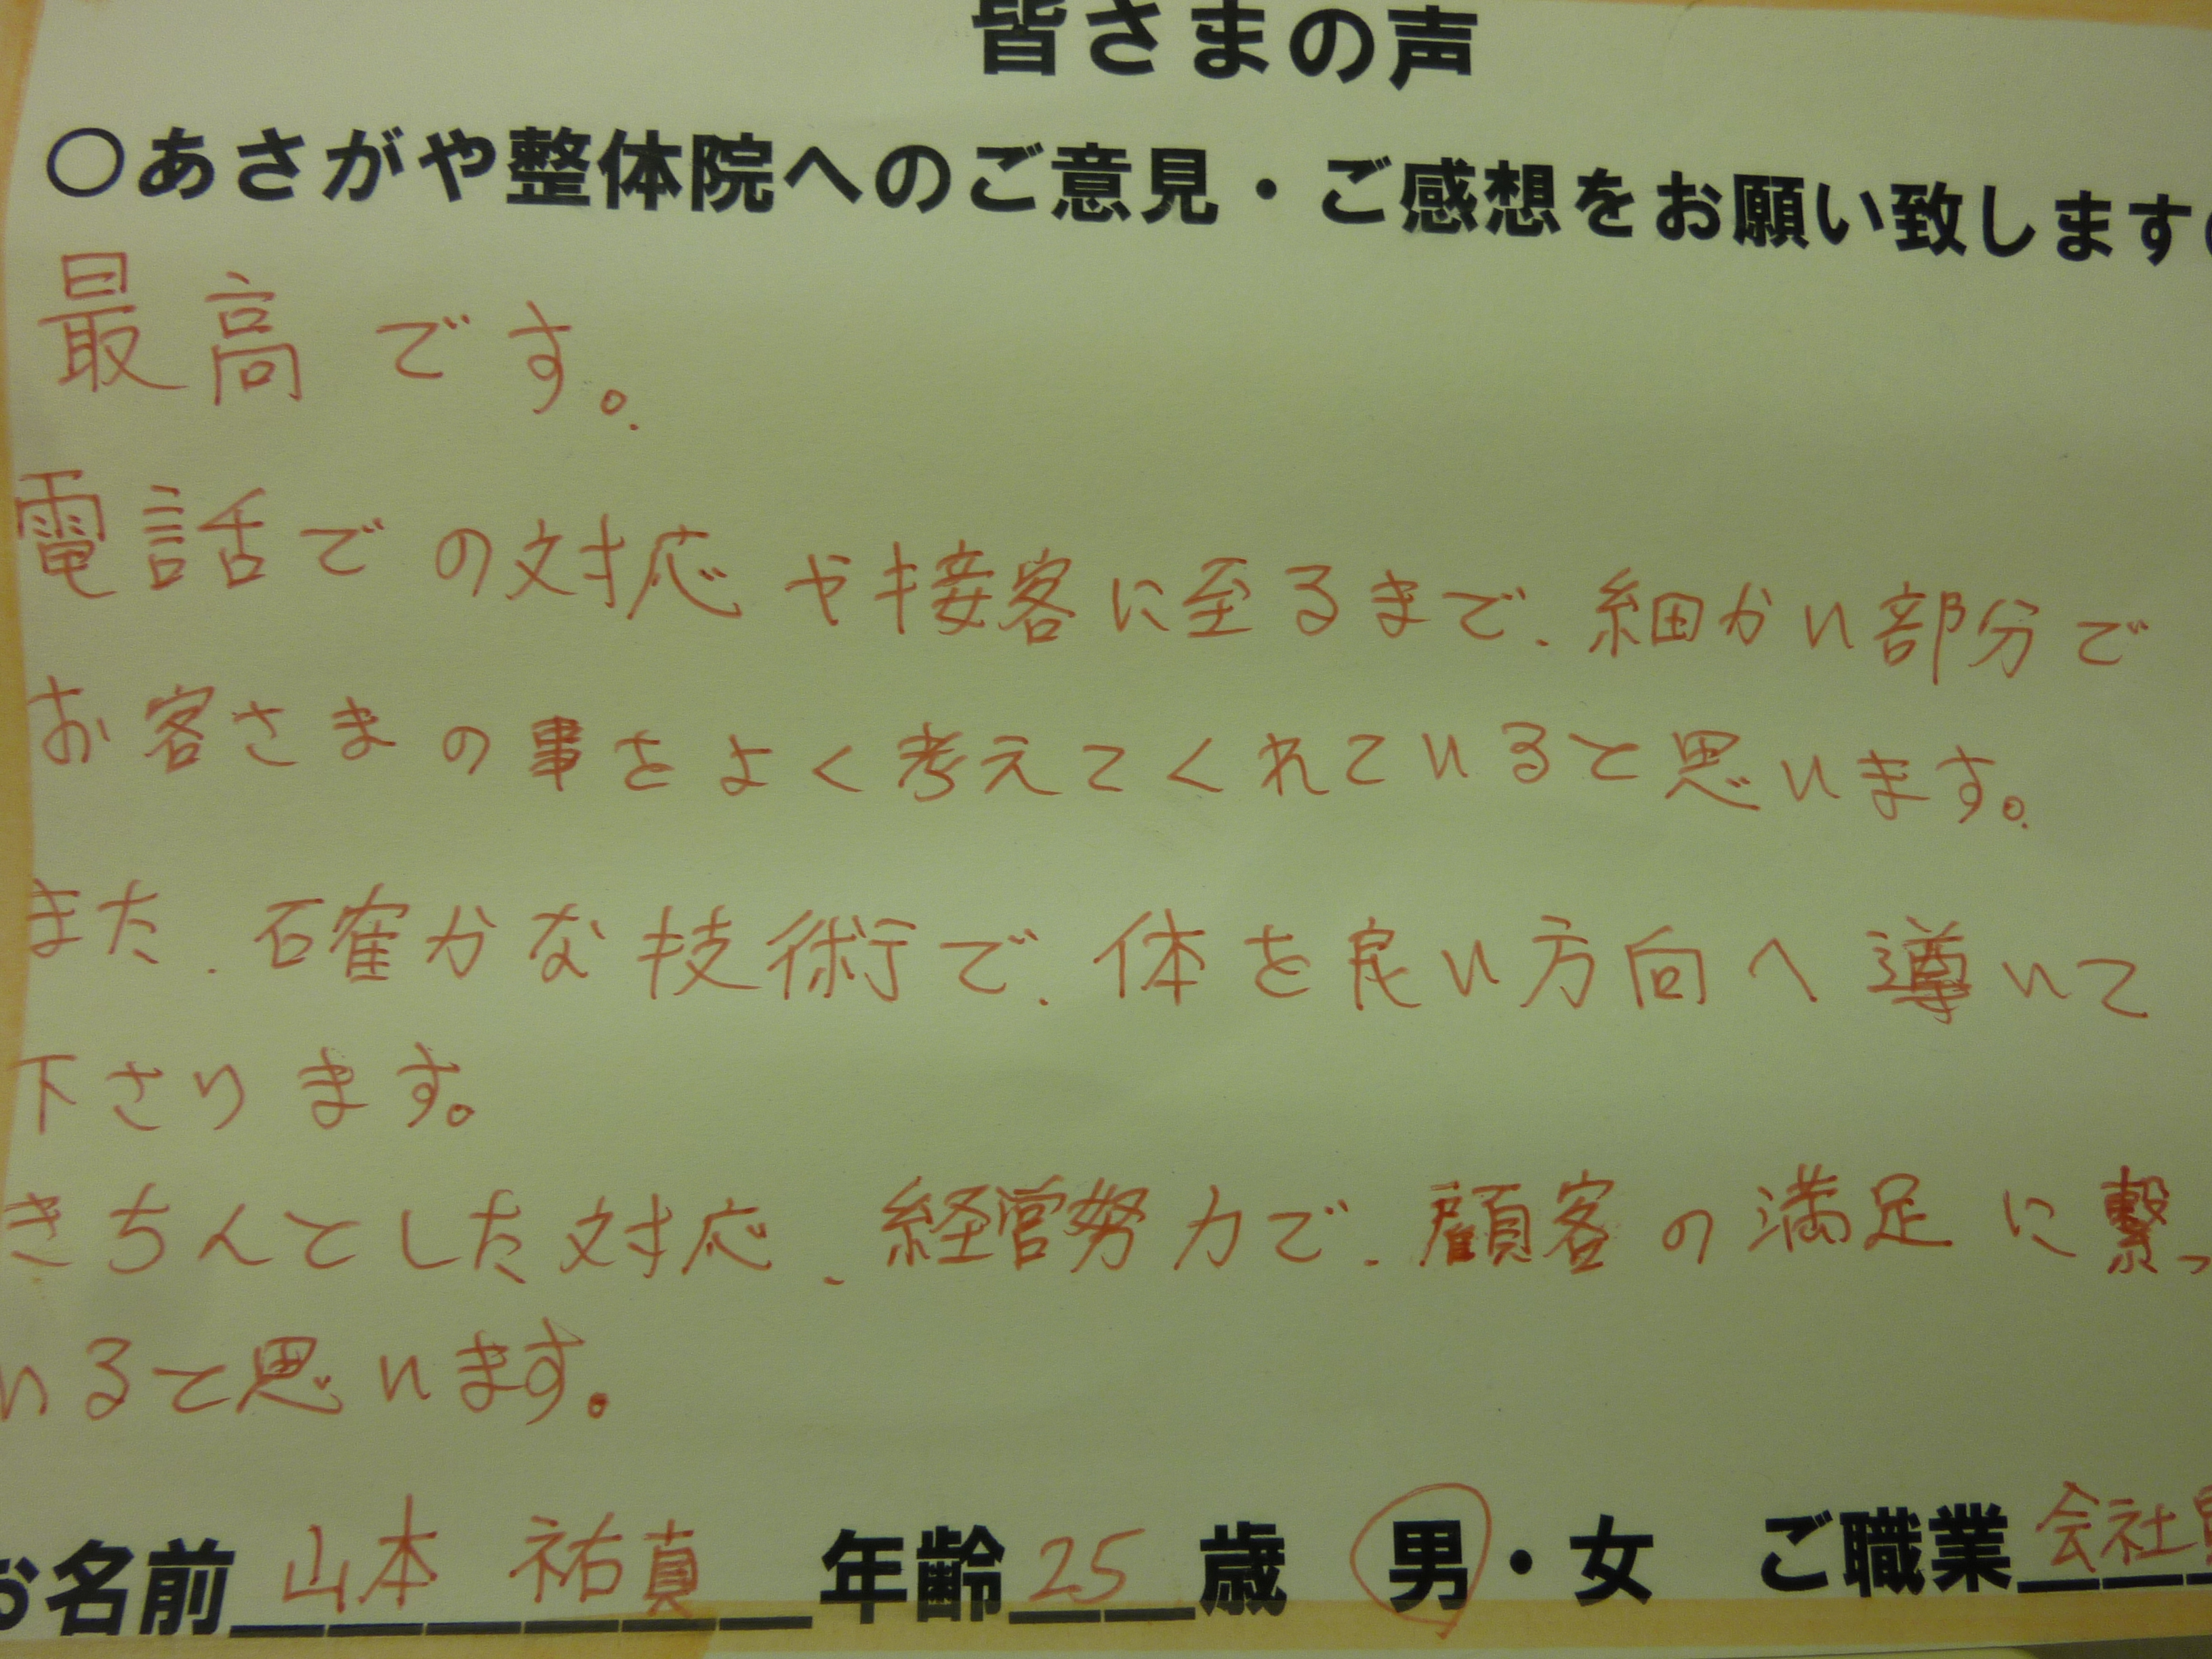 皆さまの声
〇あさがや整体院へのご意見・ご感想をお願い致します
最高です。
電話での対応や接客に至るまで、細かい部分で
お客さまの事をよく考えてくれていると思います。
また、確かな技術で、体を良い方向へ導いて
下さります。
きちんとした対応、経営努力で、顧客の満足に繋っ
いると思います。
お名前 山本 祐真 年齢 25 歳 男・女 ご職業 会社員